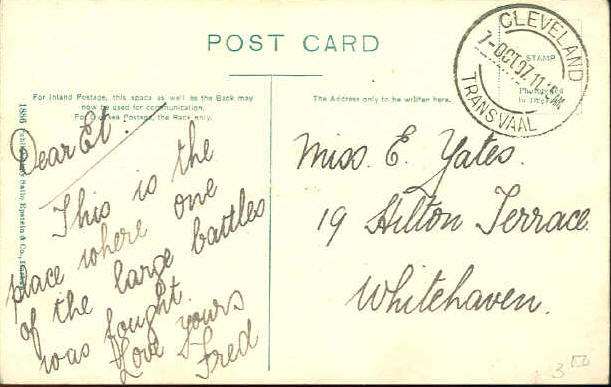 POST CARD
For Inland Postage, this space as well as the Back may
now be used for communication.
For Oversea Postage, the Back only.
The Address only to be written here.
CLEVELAND
7-OCT.07. 11
TRANSVAAL
STAMP
Dear Et.
This is the
place where one
of the large battles
was fought.
Love Yours
Fred
Miss. E. Yates.
19 Hilton Terrace.
Whitehaven.
1886
Sallo Epstein & Co.,
3